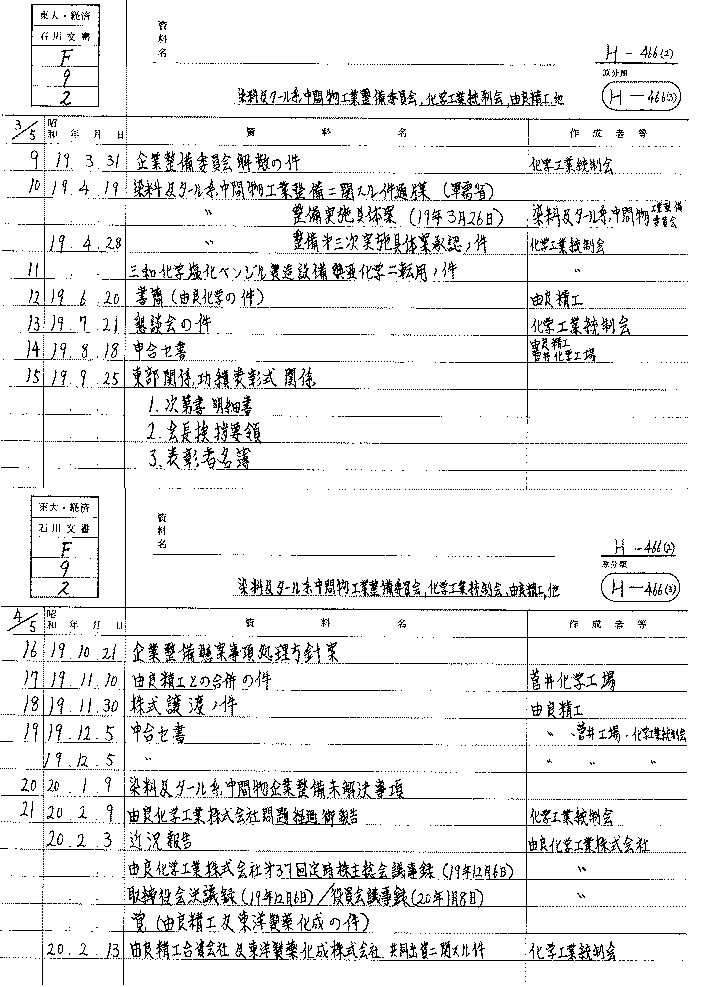 東大・経済
石川文書
F
9
2
資料名
H-466(2)
原分類
H-466(3)
染料及タール系中間物工業整備委員会,化学工業統制会,由良精工,他
3/5 昭和 年 月 日 資 料 名 作成者等
9 19.3.31 企業整備委員会解散の件 化学工業統制会
10 19.4.19 染料及タール系中間物工業整備ニ関スル件通牒(軍需省)
〃 整備実施具体案(19年3月26日) 染料及タール系中間物工業整備委員会
19.4.28 〃 整備第三次実施具体案承認ノ件 化学工業統制会
11 . . 三和化学塩化ベンジル製造設備 化学ニ転用ノ件 〃
12 19.6.20 書簡(由良化学の件) 由良精工
13 19.7.21 懇談会の件 化学工業統制会
14 19.8.18 申合セ書 由良精工 菅井化学工場
15 19.9.25 東部関係,功績表彰式関係
1.次第書明細書
2.会長挨拶要領
3.表彰者名簿
東大・経済
石川文書
F
9
2
資料名
H-466(2)
原分類
H-466(3)
染料及タール系中間物工業整備委員会,化学工業統制会,由良精工,他
4/5 昭和 年 月 日 資 料 名 作成者等
16 19.10.21 企業整備懸案事項処理方針案
17 19.11.10 由良精工との合併の件 菅井化学工場
18 19.11.30 株式譲渡ノ件 由良精工
19 19.12.5 申合セ書 〃 菅井工場・化学工業統制会
19.12.5 〃 〃 〃 〃
20 20.1.9 染料及タール系中間物企業整備未解決事項
21 20.2.9 由良化学工業株式会社問題経過御報告 化学工業統制会
20.2.3 近況報告 由良化学工業株式会社
由良化学工業株式会社第37回定時株主総会議事録(19年12月6日) 〃
取締役会決議録(19年12月6日)/役員会議事録(20年1月8日) 〃
覚(由良精工及東洋製薬化成の件)
20.2.13 由良精工合資会社及東洋製薬化成株式会社共同出資ニ関スル件 化学工業統制会